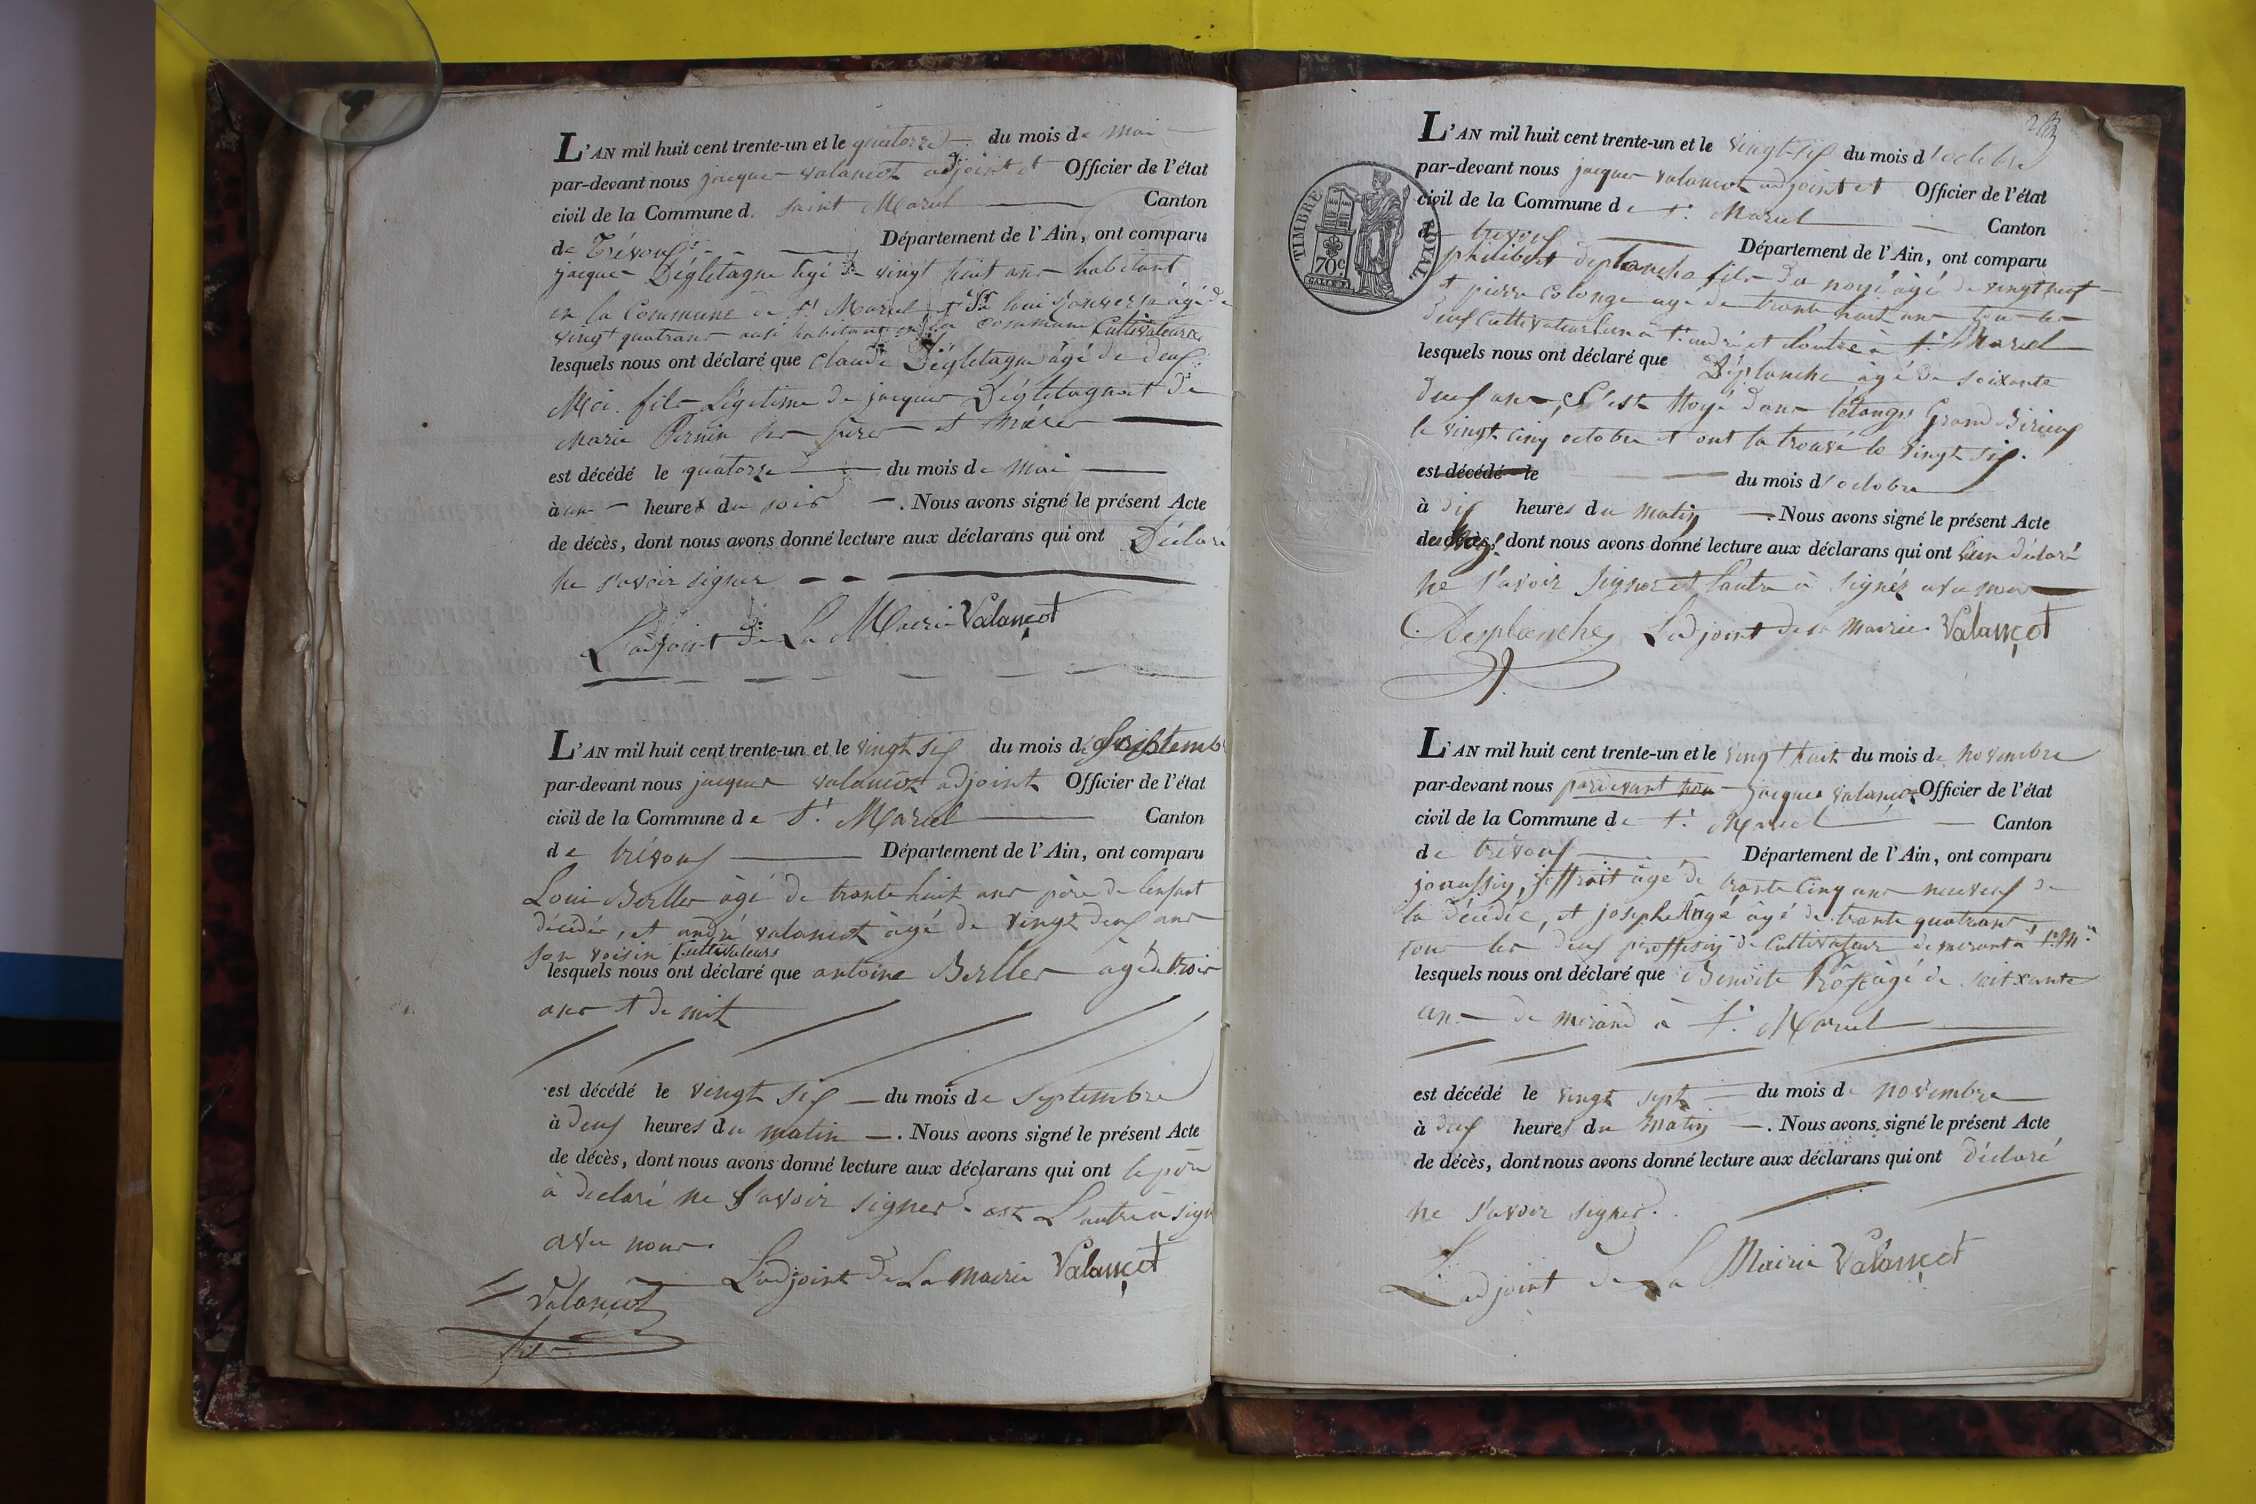 L'AN mil huit cent trente-un et le quatorze du mois de Mai
par-devant nous jacques valancot adjoint et Officier de l'état
civil de la Commune de saint Marcel Canton
de Trévoux Département de l'Ain, ont comparu
jacque Dégletagne âgé de vingt huit ans habitant
en la Commune de St Marcel et âgé de
vingt quatrans aussi habitant en la commune Cultivateures
lesquels nous ont déclaré que claude Dégletagne âgé de deux
Moi fils Légitime de jacques Dégletagne et de
Marie Pernin ses pères et Mères
est décédé le quatorze du mois de Mai
à une heures du soir . Nous avons signé le présent Acte
de décès, dont nous avons donné lecture aux déclarans qui ont Déclaré
ne savoir signer
L'adjoint de La Mairie Valançot
L'AN mil huit cent trente-un et le vingt six du mois de Septemb
par-devant nous jacques valancot adjoint Officier de l'état
civil de la Commune de St Marcel Canton
de trévoux Département de l'Ain, ont comparu
Loui Berller âgé de trente huit ans père de lenfant
décédés, et andré valancot âgé de vingt deux ans
son voisin Cultivateurs
lesquels nous ont déclaré que antoine Berller âgé de trois
ans et demit
est décédé le vingt six du mois de septembre
à deux heures du matin . Nous avons signé le présent Acte
de décès, dont nous avons donné lecture aux déclarans qui ont le père
à déclaré ne savoir signer est L'autre à sign
avec nous.
L'adjoint de La Mairie Valançot
Valançot
fils
TIMBRE ROYAL
70c
L'AN mil huit cent trente-un et le vingt-six du mois d'octobre
par-devant nous jacques valancot adjoint et Officier de l'état
civil de la Commune de St Marcel Canton
de trevoux Département de l'Ain, ont comparu
philibert deplanche fils du noyé âgé de vingt neuf
et pierre Colonge age de trente huit ans tous les
deux cultivateur l'un à St andré et l'autre à St Marcel
lesquels nous ont déclaré que Déplanche âgé de soixante
deux ans, S'est Noyé dans l'étang Grand Birieux
le vingt cinq octobre et ont la trouvé le vingt six.
est décédé le du mois d'octobre
à dix heures du matin . Nous avons signé le présent Acte
de décès, dont nous avons donné lecture aux déclarans qui ont l'un déclaré
ne s'avoir signer et l'autre à signés avec nous
Desplanche L'adjoint de la Mairie Valançot
L'AN mil huit cent trente-un et le vingt huit du mois de novembre
par-devant nous pardevant nous jacques valançot Officier de l'état
civil de la Commune de St Marcel Canton
de trévoux Département de l'Ain, ont comparu
joffrait âgé de trente Cinq ans neuveux de
la Décédée, et joseph Angé âgé de trente quatrans
tous les deux proffesion de Cultivateur demeurant à St M.
lesquels nous ont déclaré que Benoite Prost âgé de soitxante
an demerand à St Marcel
est décédé le vingt sept du mois de novembre
à deux heures du Matin . Nous avons signé le présent Acte
de décès, dont nous avons donné lecture aux déclarans qui ont déclaré
ne s'avoir signer.
L'adjoint de La Mairie Valançot